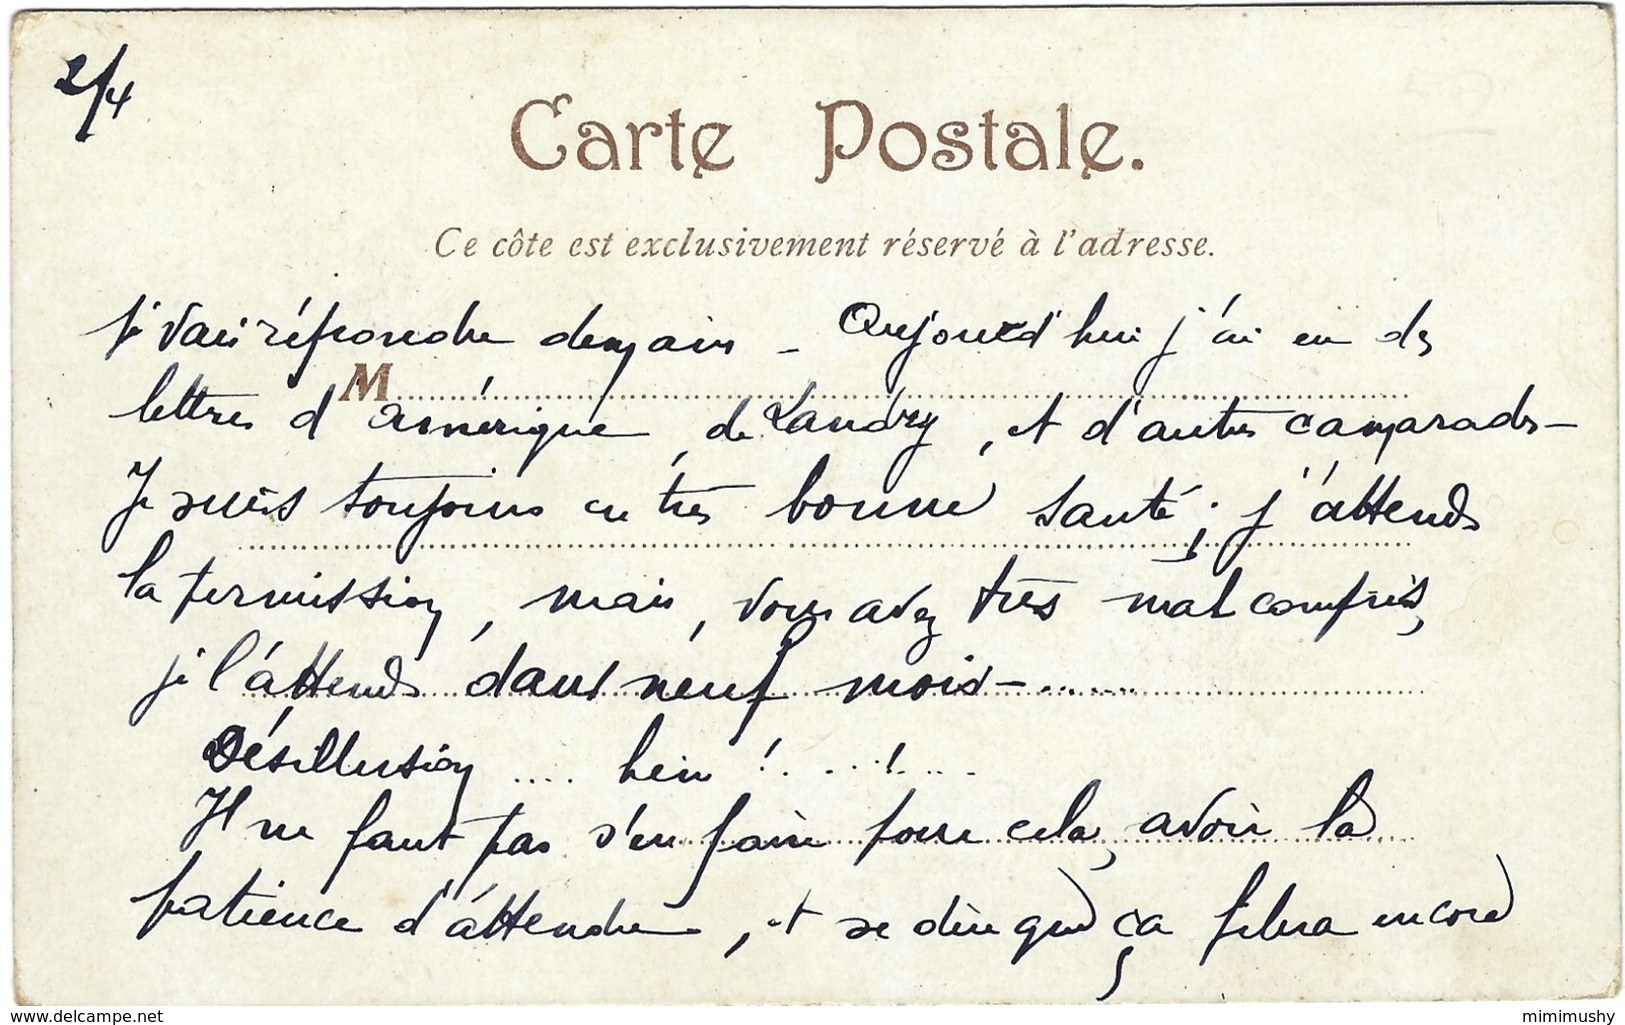 2/4
Carte Postale.
Ce côte est exclusivement réservé à l'adresse.
je vais répondre demain - Aujourd'hui j'ai eu des
M
lettres d'Amérique, de Landry, et d'autres camarades -
Je suis toujours en très bonne santé ; j'attends
la permission, mais, vous avez très mal compris,
je l'attends dans neuf mois - ......
Désillusion .... hein ! . ... ! ....
Il ne faut pas s'en faire pour cela, avoir la
patience d'attendre, et se dire que ça filera encore
www.delcampe.net
mimimushy